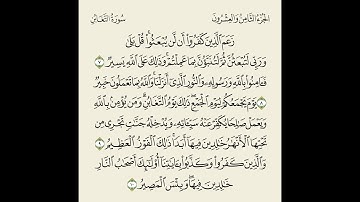 الجزء الثامن والعشرون سورة التغابن
زَعَمَ ٱلَّذِينَ كَفَرُوٓا۟ أَن لَّن يُبْعَثُوا۟ ۚ قُلْ بَلَىٰ
وَرَبِّى لَتُبْعَثُنَّ ثُمَّ لَتُنَبَّؤُنَّ بِمَا عَمِلْتُمْ ۚ وَذَٰلِكَ عَلَى ٱللَّهِ يَسِيرٌ ٧
فَـَٔامِنُوا۟ بِٱللَّهِ وَرَسُولِهِۦ وَٱلنُّورِ ٱلَّذِىٓ أَنزَلْنَا ۚ وَٱللَّهُ بِمَا تَعْمَلُونَ خَبِيرٌ
٨ يَوْمَ يَجْمَعُكُمْ لِيَوْمِ ٱلْجَمْعِ ۖ ذَٰلِكَ يَوْمُ ٱلتَّغَابُنِ ۗ وَمَن يُؤْمِنۢ بِٱللَّهِ
وَيَعْمَلْ صَـٰلِحًا يُكَفِّرْ عَنْهُ سَيِّـَٔاتِهِۦ وَيُدْخِلْهُ جَنَّـٰتٍ تَجْرِى مِن
تَحْتِهَا ٱلْأَنْهَـٰرُ خَـٰلِدِينَ فِيهَآ أَبَدًا ۚ ذَٰلِكَ ٱلْفَوْزُ ٱلْعَظِيمُ ٩
وَٱلَّذِينَ كَفَرُوا۟ وَكَذَّبُوا۟ بِـَٔايَـٰتِنَآ أُو۟لَـٰٓئِكَ أَصْحَـٰبُ ٱلنَّارِ
خَـٰلِدِينَ فِيهَا ۖ وَبِئْسَ ٱلْمَصِيرُ ١٠